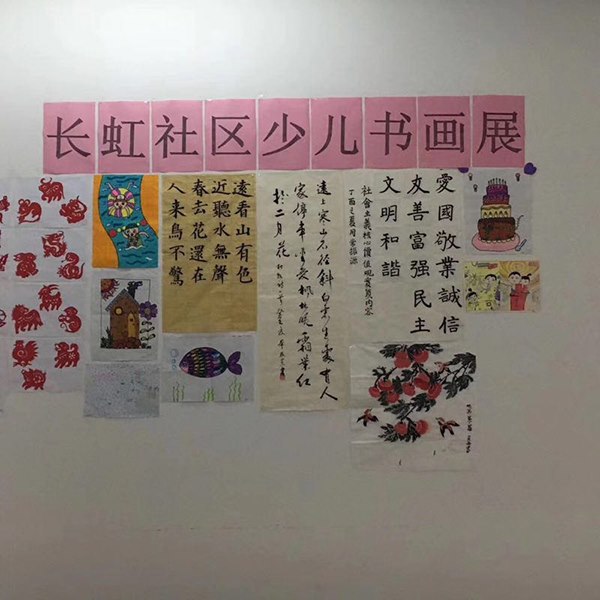 长虹社区少儿书画展
遠看山有色
近聽水無聲
春去花還在
人来鳥不驚
遠上寒山石径斜白雲生處有人
家停車坐愛楓林晚霜葉紅
於二月花
愛國敬業誠信
友善富强民主
文明和諧
社會主義核心價值觀實質内容
丁酉之夏月常振源